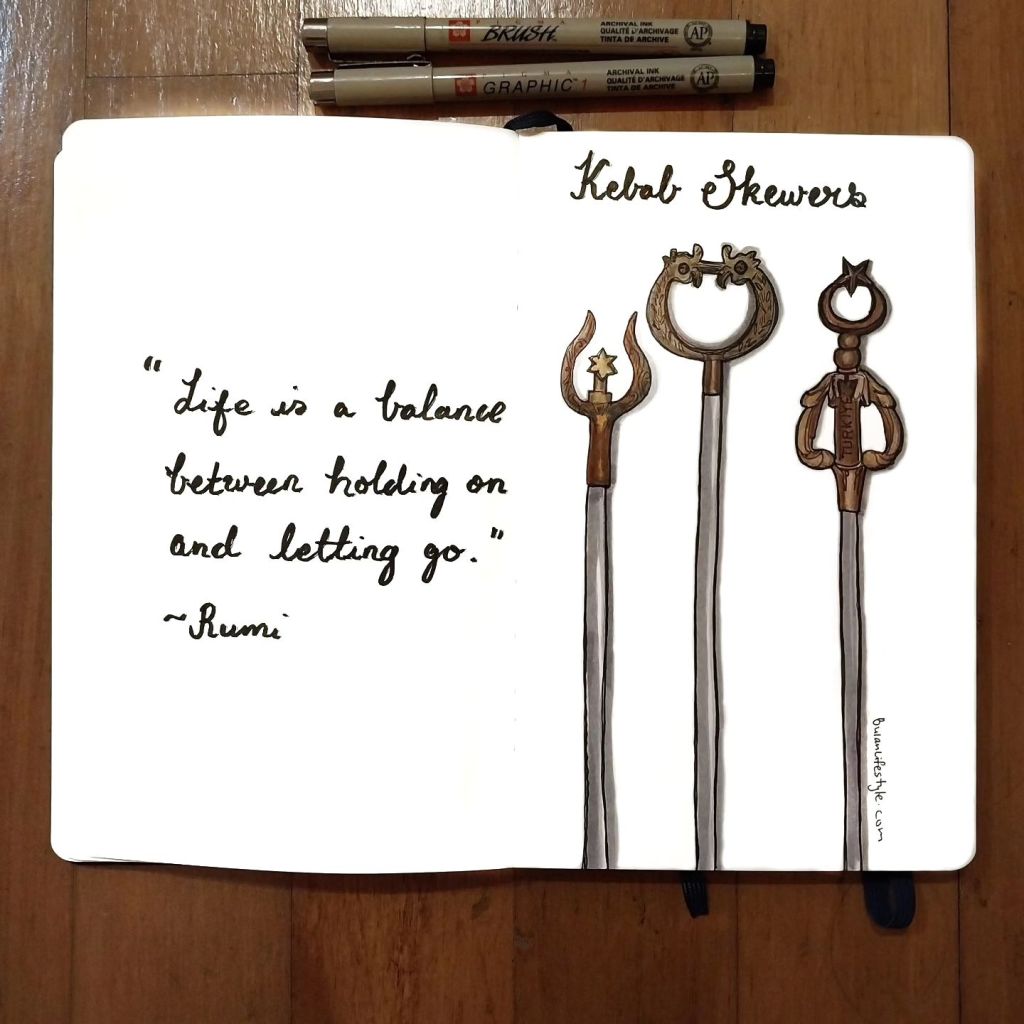 PIGMA BRUSH ARCHIVAL INK
QUALITÉ D'ARCHIVAGE
TINTA DE ARCHIVE
AP
PIGMA GRAPHIC 1 ARCHIVAL INK
QUALITÉ D'ARCHIVAGE
TINTA DE ARCHIVE
AP
"Life is a balance
between holding on
and letting go."
~Rumi
Kebab Skewers
TURKIY
Bulanlifestyle.com